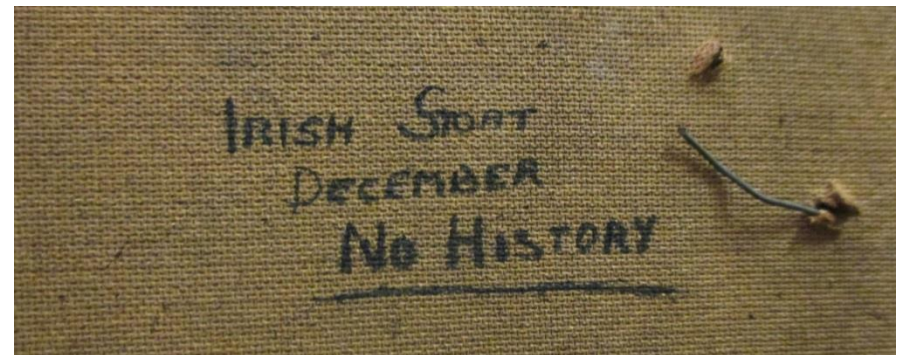 IRISH STOAT
DECEMBER
NO HISTORY